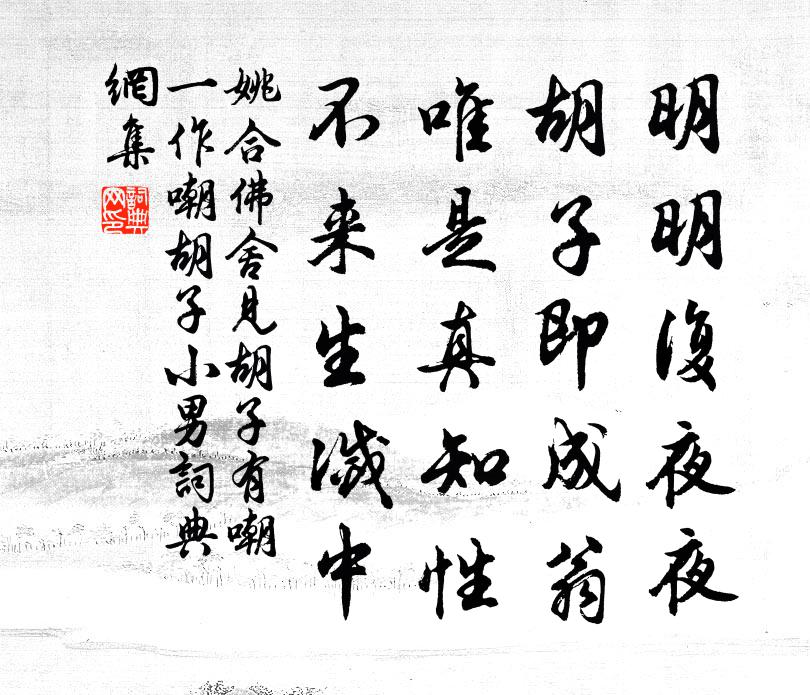 明明復夜夜
胡子即成翁
唯是真知性
不来生滅中
姚合佛舍見胡子有嘲
一作嘲胡子小男詞典
網集
詞典網印